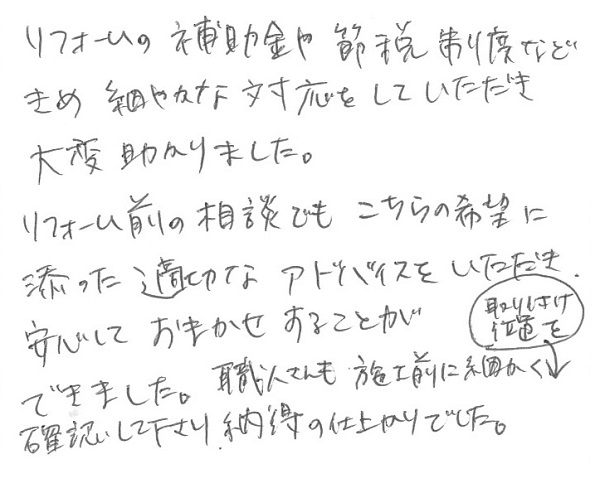 リフォームの補助金や節税制度など
きめ細やかな対応をしていただき
大変助かりました。
リフォーム前の相談でも こちらの希望に
添った適切な アドバイスをいただき、
安心して おまかせすることが
できました。職人さんも 施工前に細かく
取り付け
位置を
確認して下さり、納得の仕上がりでした。